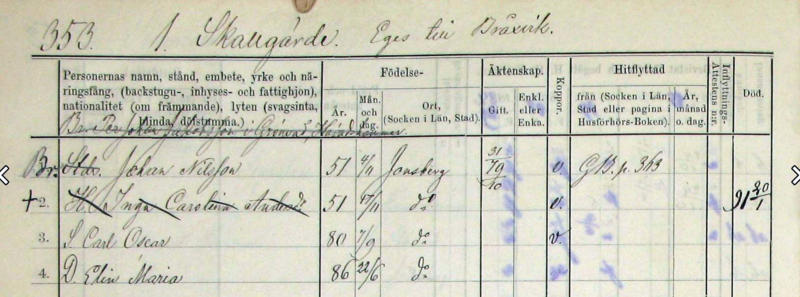 353. 1. Skaugärde. Eges till Bråxvik.
Personernas namn, stånd, embete, yrke och nä-
ringsfång, (backstugu-, inhyses- och fattighjon),
nationalitet (om främmande), lyten (svagsinta,
blinda, döfstumma.)
Födelse-
År. Mån. och dag. Ort, (Socken i Län, Stad).
Äktenskap.
Gift. Enkl. eller Enka.
Koppor.
Hitflyttad
från (Socken i Län, Stad eller pagina i Husförhörs-Boken). År, månad o. dag.
Inflyttnings-Attestens nr.
Död.
Br: Johan Nilsson 51 4/11 Jonsberg 31/10 79 v. GB. p. 363
+ 2. H. Inga Carolina Andersdr 51 17/11 do v. 91 20/1
3. S. Carl Oscar 80 7/9 do v.
4. D. Elin Maria 86 22/6 do